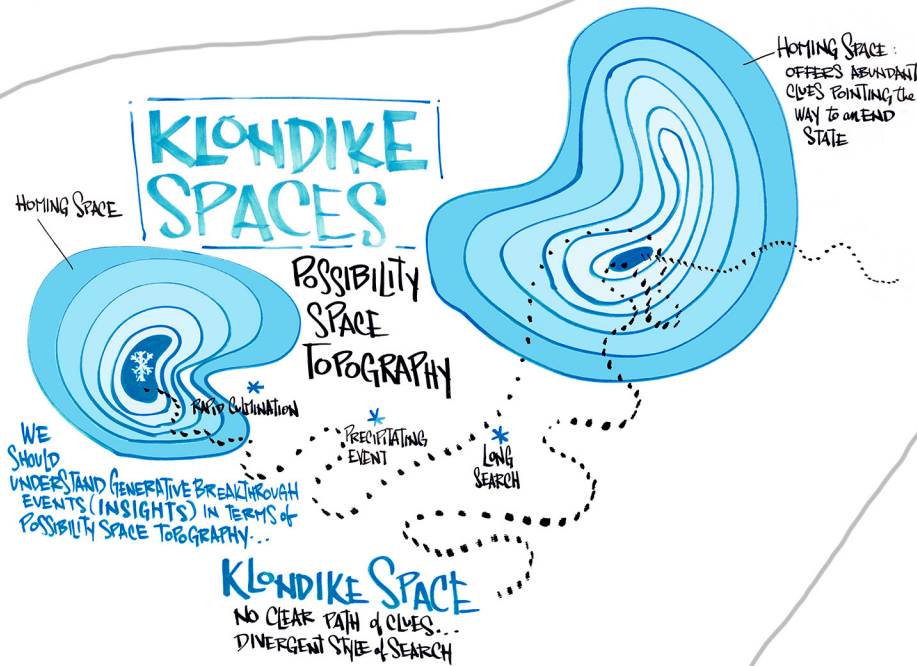 KLONDIKE
SPACES
POSSIBILITY
SPACE
TOPOGRAPHY
HOMING SPACE:
OFFERS ABUNDANT
CLUES POINTING the
WAY to an END
STATE
HOMING SPACE
* RAPID CULMINATION
* PRECIPITATING
EVENT
* LONG
SEARCH
WE
SHOULD
UNDERSTAND GENERATIVE BREAKTHROUGH
EVENTS (INSIGHTS) IN TERMS of
POSSIBILITY SPACE TOPOGRAPHY...
KLONDIKE SPACE
NO CLEAR PATH of CLUES...
DIVERGENT STYLE of SEARCH